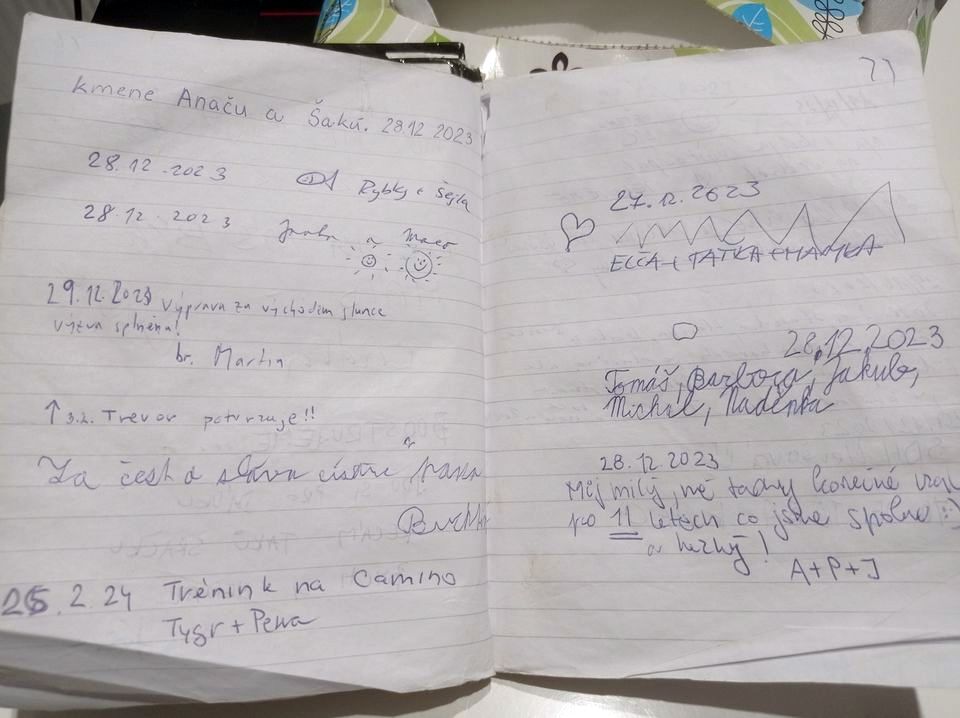 kmene Anačů a Šaků. 28.12 2023
28.12.2023 Rybky + Šejla
28.12.2023 a
29.12.2023 Výprava za východem slunce
výzva splněna!
br. Martin
↑ 3.2. Trevor potvrzuje!!
Za čest a slávu císaře pana
25.2.24 Trénink na Camino
Tygr +
27.12.2023
ELČA + TAŤKA + MAMKA
28.12.2023
Tomáš, Barbora, Jakub,
Michal, Naděnka
28.12.2023
Můj milý mě tady konečně vzal
po 11 letech co jsme spolu :)
a hezký!
A+P+J